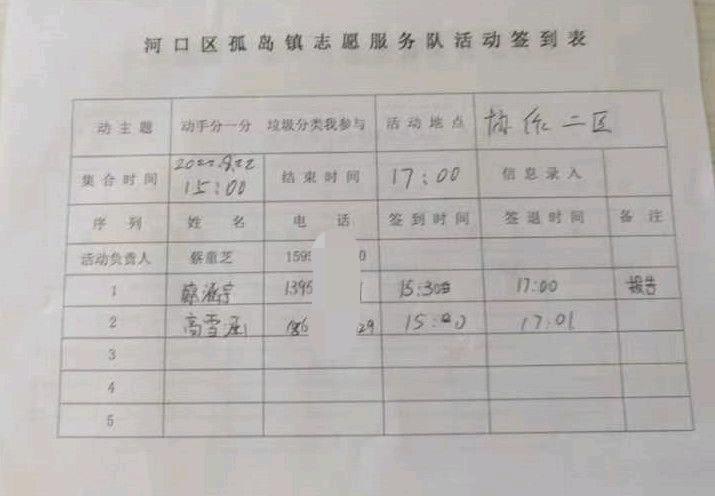 河口区孤岛镇志愿服务队活动签到表
动主题 动手分一分 垃圾分类我参与 活动地点 协作二区
集合时间 2022.8.22 15:00 结束时间 17:00 信息录入
序列 姓名 电话 签到时间 签退时间 备注
活动负责人 蔡童芝 1595 0
1 涵宇 1395 1 15:30 17:00 报告
2 高雪涵 186 29 15: 0 17:01
3
4
5